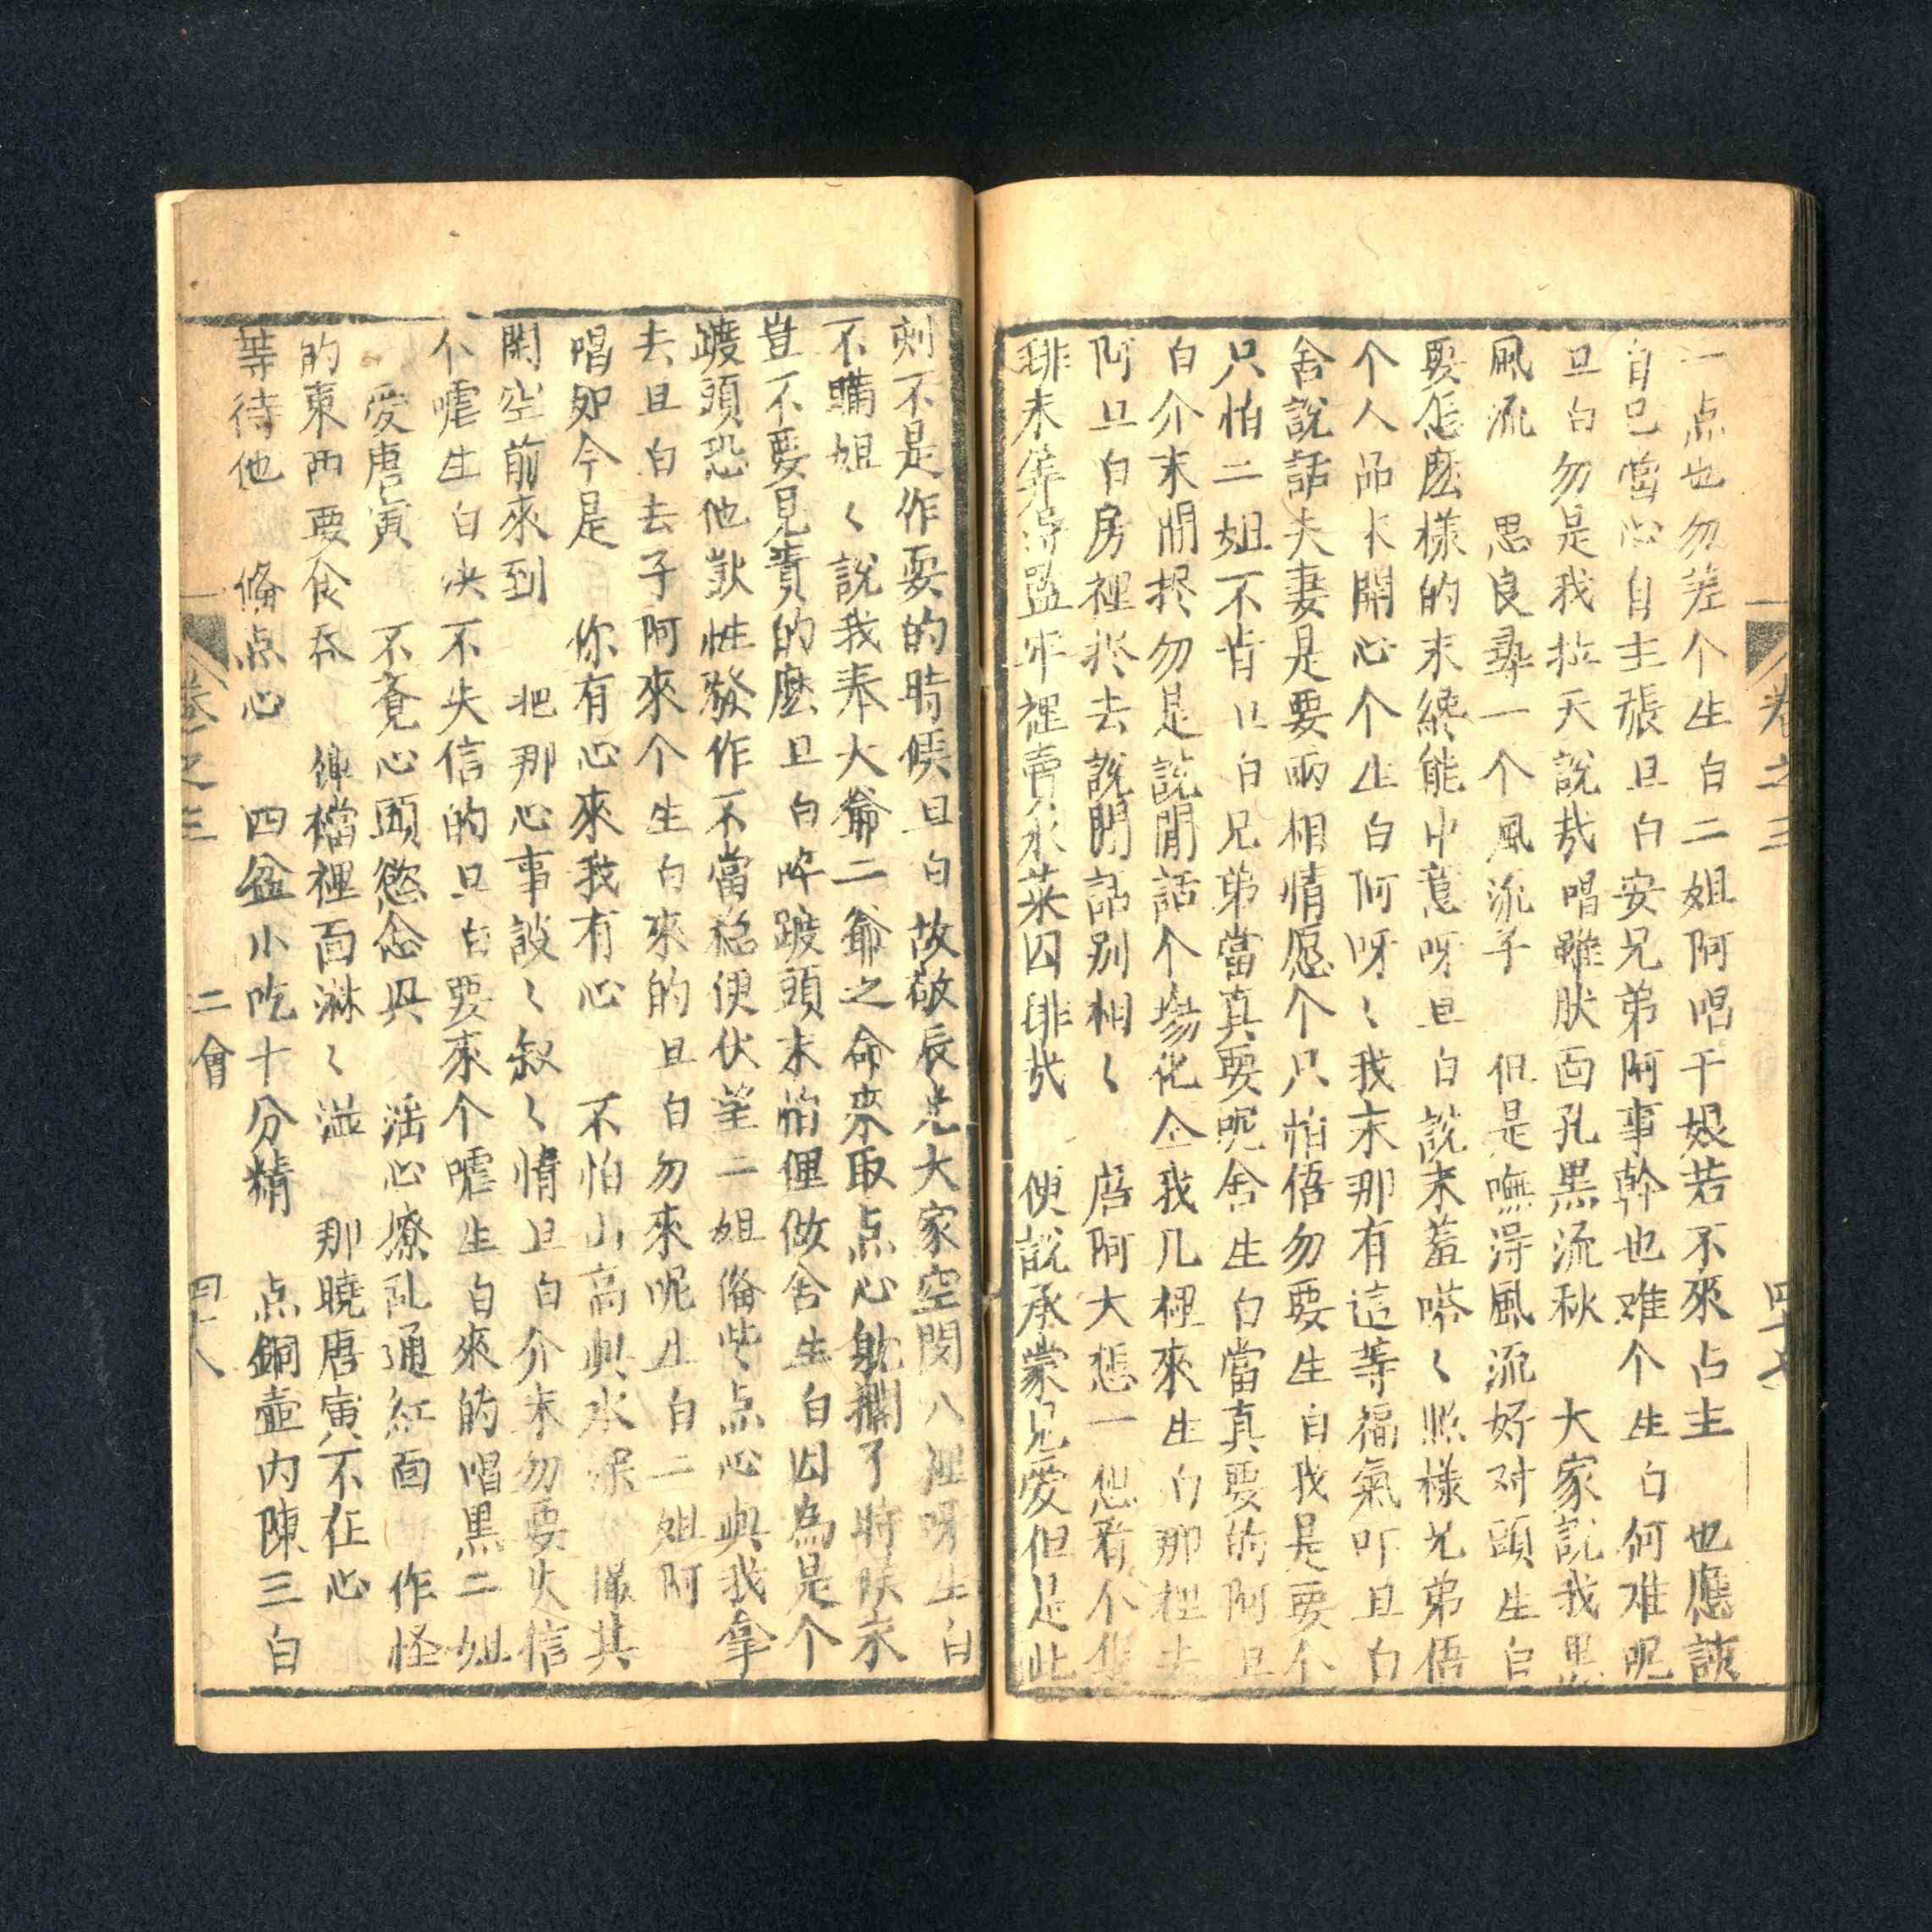 一点也勿差个生白二姐阿唱干娘若不來占主　也應該
自己當心自主張旦白安兄弟阿事幹也难个生白何难呢
旦白勿是我拉天說㢤唱雖肰面孔黑流秋　大家說我黑
風流　思良尋一个風流子　但是嘸得風流好对頭生白
要怎麽樣的末纔能中意呀旦白說末羞嗒〻照樣兄弟㑄
个人品末開心个生白何呀〻我末那有這等福氣吓旦白
舍說話夫妻是要兩相情愿个只怕㑄勿要生白我是要个
只怕二姐不肯旦白兄弟當真要呢舍生白當真要的阿旦
白介末閒挜勿是說閒話个場化仝我几裡來生白那裡去
阿旦白房裡挜去說閒話别相〻　唐阿大想一想看个
琲末筭得監牢裡賣水菜囚琲㢤　便說承蒙見愛但是此
卷之三
四十七
刻不是作耍的時候旦白故歇辰光大家空閑八裡呀生白
不瞞姐〻說我奉大爺二爺之命來取点心躭擱了時候永
豈不要見責的麽旦白啐踱頭末怕俚做舍生白因為是个
踱頭恐他獃性發作不當稳便伏望二姐俻些点心與我拿
去旦白去子阿來个生白來的旦白勿來呢生白二姐阿
唱如今是　你有心來我有心　不怕山高與水深　撮其
開空前來到　把那心事談〻叙〻情旦白介末勿要失信
个嘘生白决不失信的旦白要來个嘘生白來的唱黑二姐
愛唐寅　不覺心頭慾念興　滛心撩乱通紅面　作怪
的東西要食吞　褲襠裡面淋〻溢　那曉唐寅不在心
等待他　俻点心　四盆小吃十分精　点銅壺内陳三白
卷之三
二會
四十八